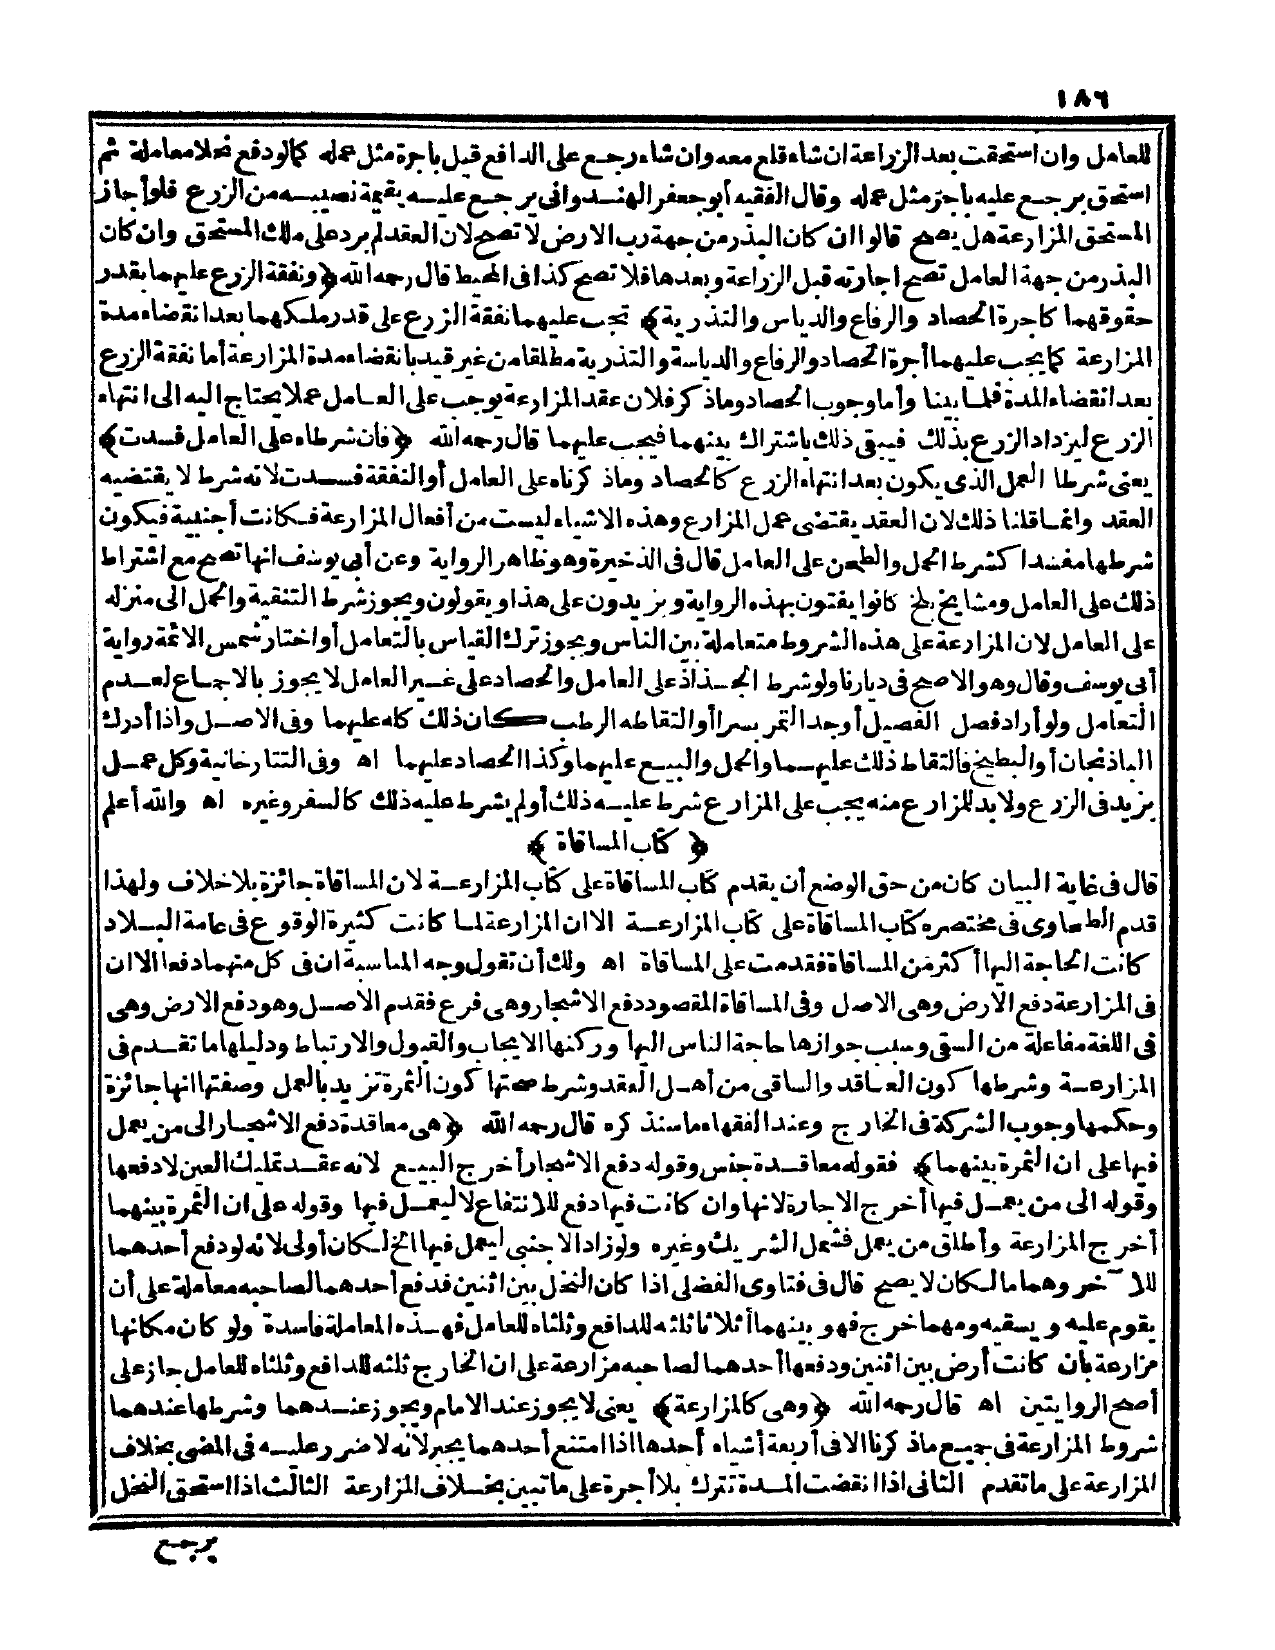 ١٨٦
للعامل وان استحقت بعد الزراعة ان شاء قلع معه وان شاء رجع على الدافع قبل باجرة مثل عمله كما لو دفع نخلا معاملة ثم
استحق يرجع عليه باجر مثل عمله وقال الفقيه أبو جعفر الهندوانى يرجع عليه بقيمة نصيبه من الزرع فلو أجاز
المستحق المزارعة هل يصح قالوا ان كان البذر من جهة رب الارض لا تصح لان العقد لم يرد على ملك المستحق وان كان
البذر من جهة العامل تصح اجارته قبل الزراعة وبعدها فلا تصح كذا فى المحيط قال رحمه الله ﴿ونفقة الزرع عليهما بقدر
حقوقهما كاجرة الحصاد والرفاع والدياس والتذرية﴾ تجب عليهما نفقة الزرع على قدر ملكهما بعد انقضاء مدة
المزارعة كما يجب عليهما أجرة الحصاد والرفاع والدياسة والتذرية مطلقا من غير قيد بانقضاء مدة المزارعة أما نفقة الزرع
بعد انقضاء المدة فلما بينا وأما وجوب الحصاد وماذكر فلان عقد المزارعة يوجب على العامل عملا يحتاج اليه الى انتهاء
الزرع ليزداد الزرع بذلك فيبقى ذلك باشتراك بينهما فيجب عليهما قال رحمه الله ﴿فان شرطاه على العامل فسدت﴾
يعنى شرطا العمل الذى يكون بعد انتهاء الزرع كالحصاد وماذكرناه على العامل أو النفقة فسدت لانه شرط لا يقتضيه
العقد وانما قلنا ذلك لان العقد يقتضى عمل المزارع وهذه الاشياء ليست من أفعال المزارعة فكانت أجنبية فيكون
شرطها مفسدا كشرط الحمل والطحن على العامل قال فى الذخيرة وهو ظاهر الرواية وعن أبى يوسف انها تصح مع اشتراط
ذلك على العامل ومشايخ بلخ كانوا يفتون بهذه الرواية ويزيدون على هذا ويقولون ويجوز شرط التنقية والحمل الى منزله
على العامل لان المزارعة على هذه الشروط متعاملة بين الناس ويجوز ترك القياس بالتعامل أو اختار شمس الائمة رواية
أبى يوسف وقال وهو الاصح فى ديارنا ولو شرط الجذاذ على العامل والحصاد على غير العامل لا يجوز بالاجماع لعدم
التعامل ولو أراد فصل الفصيل أو جد التمر بسرا أو التقاطه الرطب كان ذلك كله عليهما وفى الاصل واذا أدرك
الباذنجان أو البطيخ فالتقاط ذلك عليهما والحمل والبيع عليهما وكذا الحصاد عليهما اه وفى التتارخانية وكل عمل
يزيد فى الزرع ولا بد للمزارع منه يجب على المزارع شرط عليه ذلك أو لم يشرط عليه ذلك كالسفر وغيره اه والله أعلم
﴿ كتاب المساقاة ﴾
قال فى غاية البيان كان من حق الوضع أن يقدم كتاب المساقاة على كتاب المزارعة لان المساقاة جائزة بلا خلاف ولهذا
قدم الطحاوى فى مختصره كتاب المساقاة على كتاب المزارعة الا ان المزارعة لما كانت كثيرة الوقوع فى عامة البلاد
كانت الحاجة اليها أكثر من المساقاة فقدمت على المساقاة اه ولك أن تقول وجه المناسبة ان فى كل منهما دفعا الا ان
فى المزارعة دفع الارض وهى الاصل وفى المساقاة المقصود دفع الاشجار وهى فرع فقدم الاصل وهو دفع الارض وهى
فى اللغة مفاعلة من السقى وسبب جوازها حاجة الناس اليها وركنها الايجاب والقبول والارتباط ودليلها ما تقدم فى
المزارعة وشرطها كون العاقد والساقى من أهل العقد وشرط صحتها كون الثمرة تزيد بالعمل وصفتها انها جائزة
وحكمها وجوب الشركة فى الخارج وعند الفقهاء ما سنذكره قال رحمه الله ﴿هى معاقدة دفع الاشجار الى من يعمل
فيها على ان الثمرة بينهما﴾ فقوله معاقدة جنس وقوله دفع الاشجار أخرج البيع لانه عقد تمليك العين لا دفعها
وقوله الى من يعمل فيها أخرج الاجارة لانها وان كانت فيها دفع للانتفاع لا ليعمل فيها وقوله على ان الثمرة بينهما
أخرج المزارعة وأطلق من يعمل فشمل الشريك وغيره ولو زاد الاجنبى ليعمل فيها الخ لكان أولى لانه لو دفع أحدهما
للآخر وهما مالكان لا يصح قال فى فتاوى الفضلى اذا كان النخل بين اثنين فدفع أحدهما لصاحبه معاملة على أن
يقوم عليه ويسقيه ومهما خرج فهو بينهما أثلاثا ثلثه للدافع وثلثاه للعامل فهذه المعاملة فاسدة ولو كان مكانها
مزارعة بأن كانت أرض بين اثنين ودفعها أحدهما لصاحبه مزارعة على ان الخارج ثلثه للدافع وثلثاه للعامل جاز على
أصح الروايتين اه قال رحمه الله ﴿وهى كالمزارعة﴾ يعنى لا يجوز عند الامام ويجوز عندهما وشرطها عندهما
شروط المزارعة فى جميع ماذكرنا الا فى أربعة أشياء أحدها اذا امتنع أحدهما يجبر لانه لا ضرر عليه فى المضى بخلاف
المزارعة على ما تقدم الثانى اذا انقضت المدة تترك بلا أجرة على ما تبين بخلاف المزارعة الثالث اذا استحق النخل
يرجع